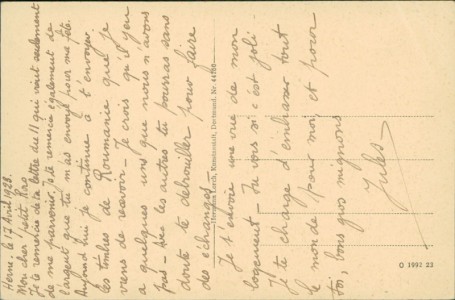 Herne. le 17 Avril 1923.
Mon cher petit
Je te remercie de ta lettre du 11 qui vient seulement
de me parvenir. Je te remercie également de
l'argent que tu m'as envoyé pour ma fête.
Aujourd'hui je continue à t'envoyer
les timbres de Roumanie que je
viens de recevoir - Je crois qu'il y en
a quelques uns que nous n'avons
pas - Avec les autres tu pourras sans
doute te débrouiller pour faire
des échanges -
Je t'envoie une vue de mon
logement - Tu vois si c'est joli
Je te charge d'embrasser tout
le monde pour moi et pour
toi, bons gros mignons
Jules
Hermann Lorch, Kunstanstalt, Dortmund. Nr.
O 1991 23